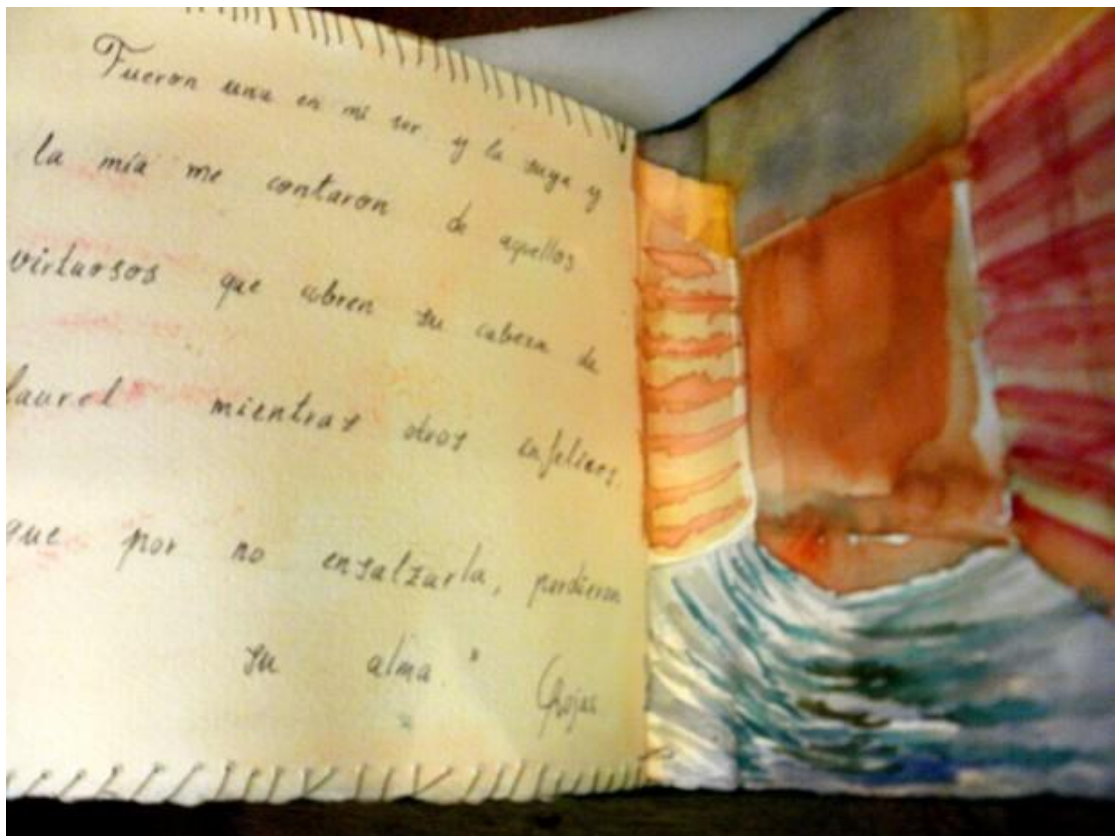 Fueron una en mi ser y la suya y
la mía me contaron de aquellos
virtuosos que cubren su cabeza de
laurel mientras otros infelices,
que por no ensalzarla, perdieron
su alma." (Rojas